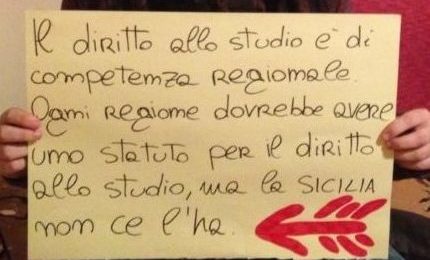 Il diritto allo studio è di
competenza regionale.
Ogni regione dovrebbe avere
uno statuto per il diritto
allo studio, ma la SICILIA
non ce l'ha.